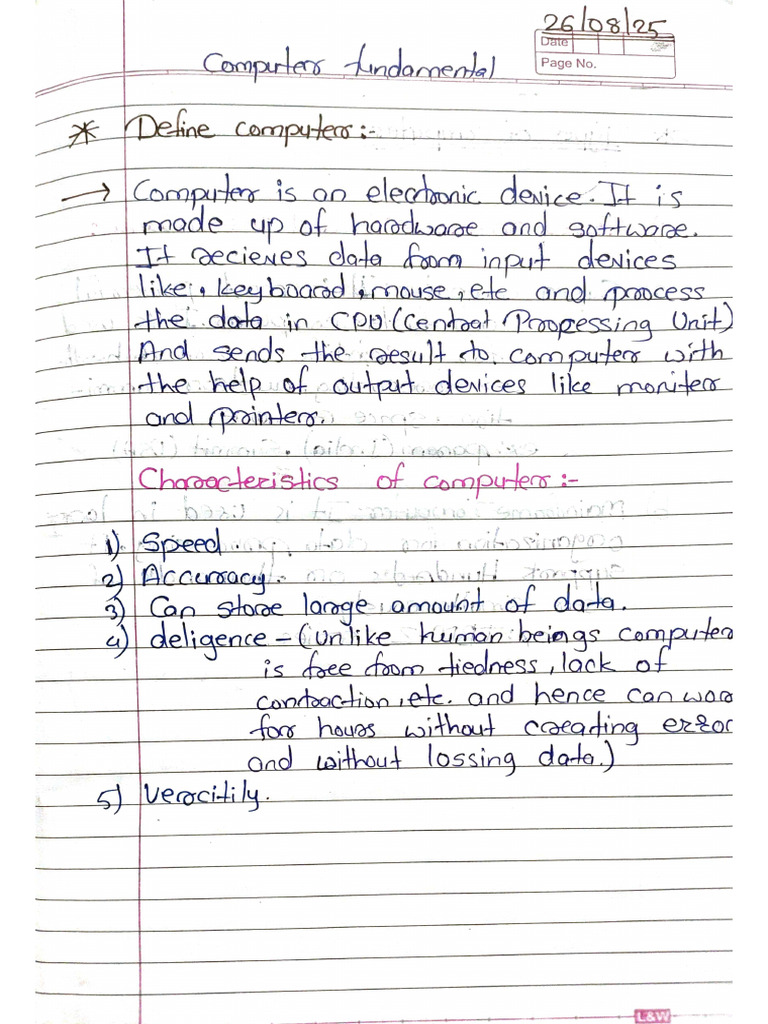 26/08/25
Date
Page No.
Computer fundamental
* Define computer:-
→ Computer is an electronic device. It is
made up of hardware and software.
It recieves data from input devices
like, keyboard, mouse, etc and process
the data in CPU (Central Propessing Unit)
And sends the result to computer with
the help of output devices like moniter
and printer.
Characteristics of computer:-
1) Speed
2) Accuracy.
3) Can store large amount of data.
4) deligence - (unlike human beings computer
is free from tiedness, lack of
contraction, etc. and hence can
for hours without creating error
and without lossing data.)
5) Veracitily.
L&W